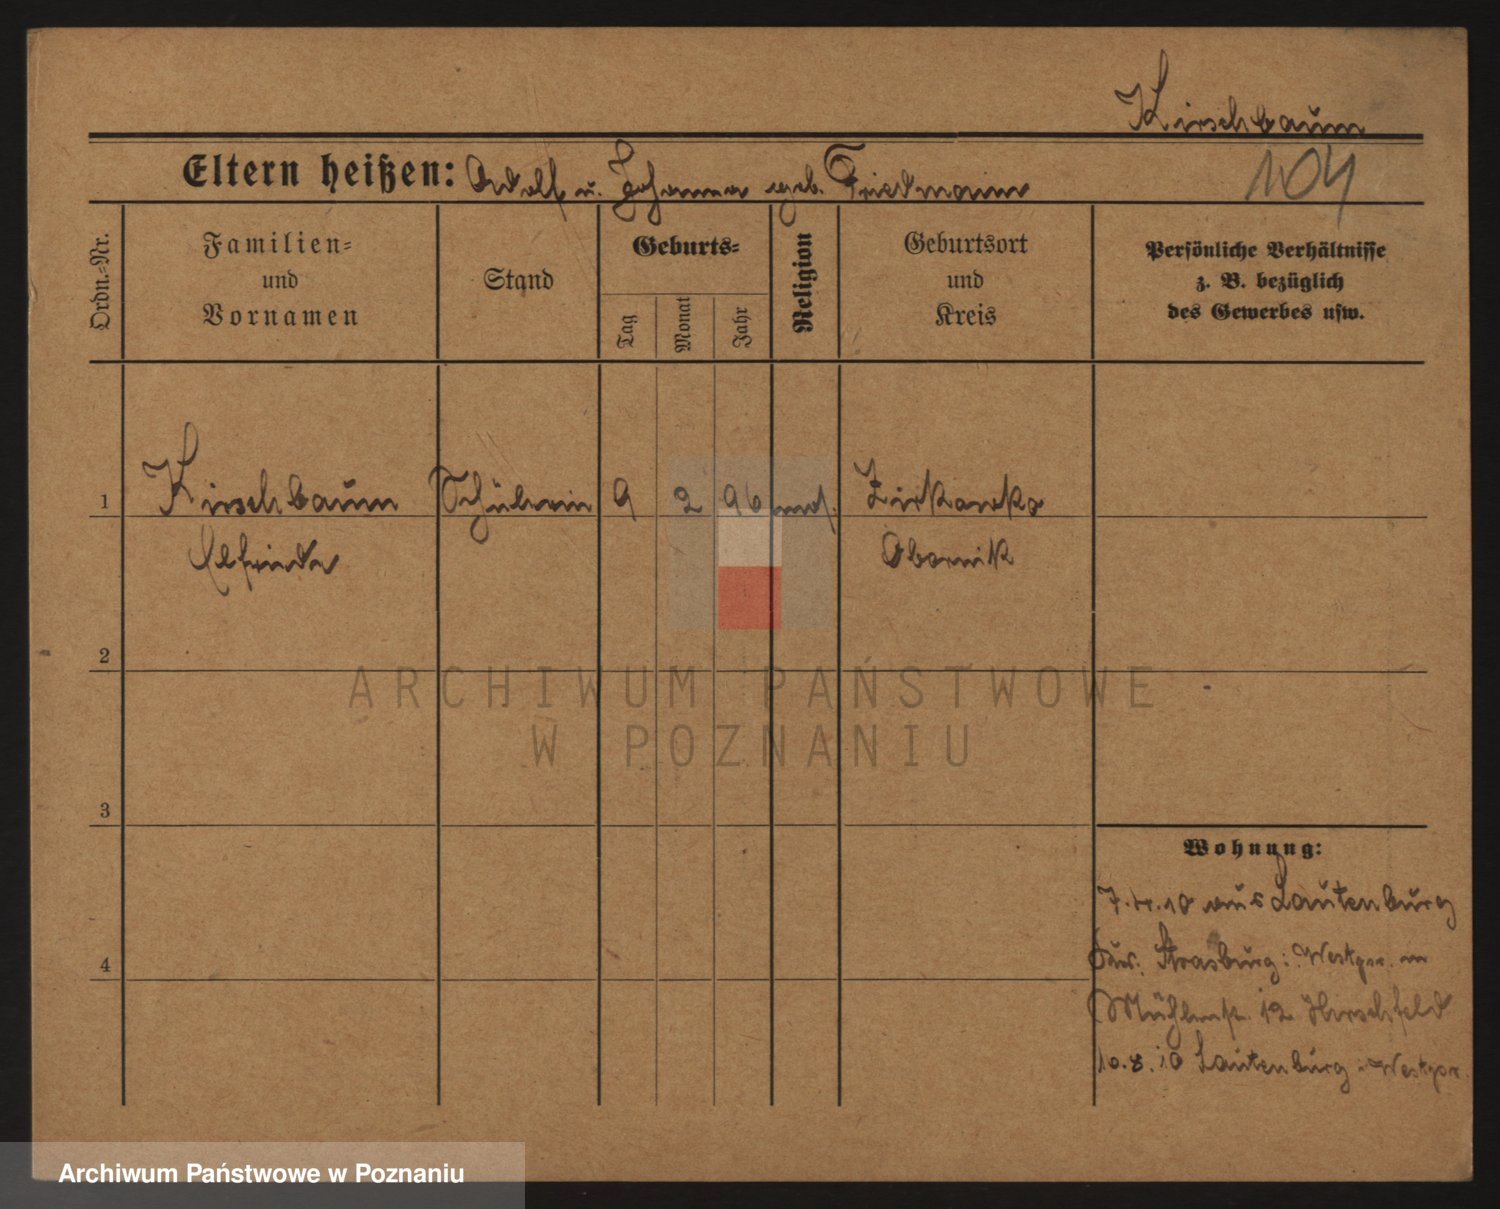 Kirschbaum
Eltern heißen: Adolf u. Johanna geb. Friedmann
104
Ordn.-Nr.
Familien-
und
Vornamen
Stand
Geburts-
Tag
Monat
Jahr
Religion
Geburtsort
und
Kreis
Persönliche Verhältnisse
z. B. bezüglich
des Gewerbes usw.
1 Kirschbaum Schülerin 9 2 96 mos. Zirkowko
Elfriede Obornik
2
ARCHIWUM PAŃSTWOWE
W POZNANIU
3
Wohnung:
7.4.10 aus Lautenburg
Strasburg: Westpr.
4
Mühlenstr. 12 Hirschfeld
10.8.10 Lautenburg Westpr.
Archiwum Państwowe w Poznaniu